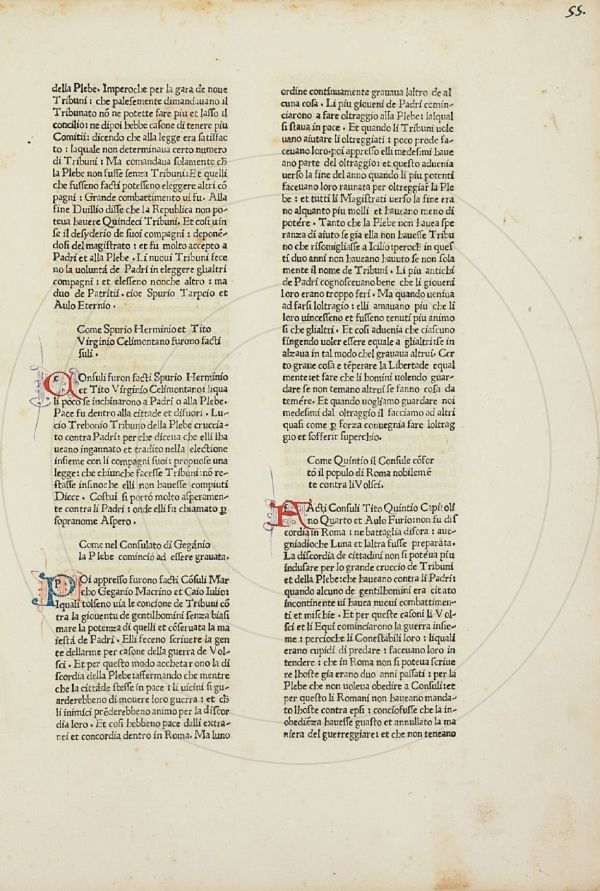 55.
della Plebe. Imperoche per la gara de noue
Tribuni: che palesemente dimandauano il
Tribunato nõ ne potette fare piu et lasso il
concilio: ne dipoi hebbe casone di tenere piu
Comitii: dicendo che alla legge era satiffac
to: laquale non determinaua certo numero
di Tribuni: Ma comandaua solamente ch̄
la Plebe non fusse senza Tribuni: Et quelli
che fusseno facti potesseno eleggere altri cõ
pagni: Grande combattimento ui fu. Alla
fine Duillio disse che la Republica non po-
teua hauere Quindeci Tribuni. Et cosi uin
se il desyderio de suoi compagni: deponē-
dosi del magistrato: et fu molto accepto a
Padri et alla Plebe. Li nuoui Tribuni fece
no la voluntá de Padri in eleggere glialtri
compagni: et elesseno nonche altro: ma
duo de Patritii. cioe Spurio Tarpeio et
Aulo Eternio.
Come Spurio Herminio et Tito
Virginio Celimontano furono facti
suli.
Cc Onsuli furon facti Spurio Herminio
et Tito Virginio Celimontano: liqua
li poco se inchinarono a Padri o alla Plebe.
Pace fu dentro alla cittade et difuori. Lu-
cio Trebonio Tribuno della Plebe cruccia-
to contra Padri: per che diceua che elli lha
ueano ingannato et tradito nella electione
insieme con li compagni suoi: propuose una
legge: che chiunche facesse Tribuni: nõ re-
stasse infinoche elli non hauesse compiuti
Diece. Costui si portó molto asperamen-
te contra li Padri: onde elli fu chiamato ꝑ
sopranome Aspero.
Come nel Consulato di Gegánio
la Plebe cominció ad essere grauata.
Pp Oi appresso furono facti Cõsuli Mar
cho Geganio Macrino et Caio Iulio:
Iquali tolseno uia le concione de Tribuni cõ
tra la giouentu de gentilhomini senza biasi
mare la potenza di quelli et cõseruata la ma
iestá de Padri. Elli feceno scriuere la gen
te dellarme per casone della guerra de Vol-
sci. Et per questo modo acchetarono la di
scordia della Plebe: taffermando che mentre
che la cittáde stesse in pace: li uicini si gu-
arderebbeno di mouere loro guerra: et ch̄
li inimici prēderebbeno animo per la discor
dia loro. Et cosi hebbeno pace dalli extra-
nei et concordia dentro in Roma. Ma luno
ordine continuamente grauaua laltro de al
cuna cosa. Li piu gioueni de Padri comin-
ciarono a fare oltraggio alla Plebe: laqual
si staua in pace. Et quando li Tribuni uole
uano aiutare li oltreggiati: poco prode fa-
ceuano loro: poi appresso elli medesimi haue
ano parte del oltraggio: et questo adueuia
uerso la fine del anno quando li piu potenti
faceuano loro raunata per oltreggiar la Ple
be: et tutti li Magistrati uerso la fine era
no alquanto piu molli et haueano meno di
potére. Tanto che la Plebe non hauea spe
ranza di aiuto se gia ella non hauesse Tribu
no che risomigliasse a Icilio: peroch̄ in ques
ti duo anni non haueano hauuto se non sola
mente il nome de Tribuni. Li piu antichi
de Padri cognosceuano bene che li gioueni
loro erano troppo feri. Ma quando ueniua
ad farsi loltragio: elli amauano piu che li
loro uincesseno et fusseno tenuti piu animo
si che glialtri. Et cosi aduenia che ciascuno
fingendo uoler essere equale a glialtri: se in
alzaua in tal modo chel grauaua altrui. Cer
to graue cosa e tēperare la Libertade equal
mente: et fare che li homini uolendo guar-
dare se non temano altrui se fanno cosa da
temére. Et quando uogliamo guardare noi
medesimi dal oltraggio il facciamo ad altri
quasi come ꝑ forza conuegnia fare loltrag
gio et sofferir superchio.
Come Quintio il Consule cõfor
tó il populo di Roma nobilemē
te contra li Volsci.
Ff Acti Consuli Tito Quintio Capitoli
no Quarto et Aulo Furio: non fu dis
cordia in Roma: ne battaglia difora: aue-
gniadioche Luna et laltra fusse preparata.
La discordia de cittadini non si poteua piu
indusare per lo grande cruccio de Tribuni
et della Plebe: che haueano contra li Padri:
quando alcuno de gentilhomini era citato
incontinente ui hauea nuoui combattimen-
ti et mischie. Et per queste casoni li Vol-
sci et li Equi cominciarono la guerra insie-
me: percioche li Conestabili loro: liquali
erano cupidi di predare: faceuano loro in
tendere: che in Roma non si poteua scriue
re lhoste gia erano duo anni passati: per la
Plebe che non uoleua obedire a Consuli: et
per questo li Romani non haueano manda-
to lhoste contra epsi: conciosusse che la in-
obediēza hauesse guasto et annullato la ma
niera del guerreggiare: et che non teneano